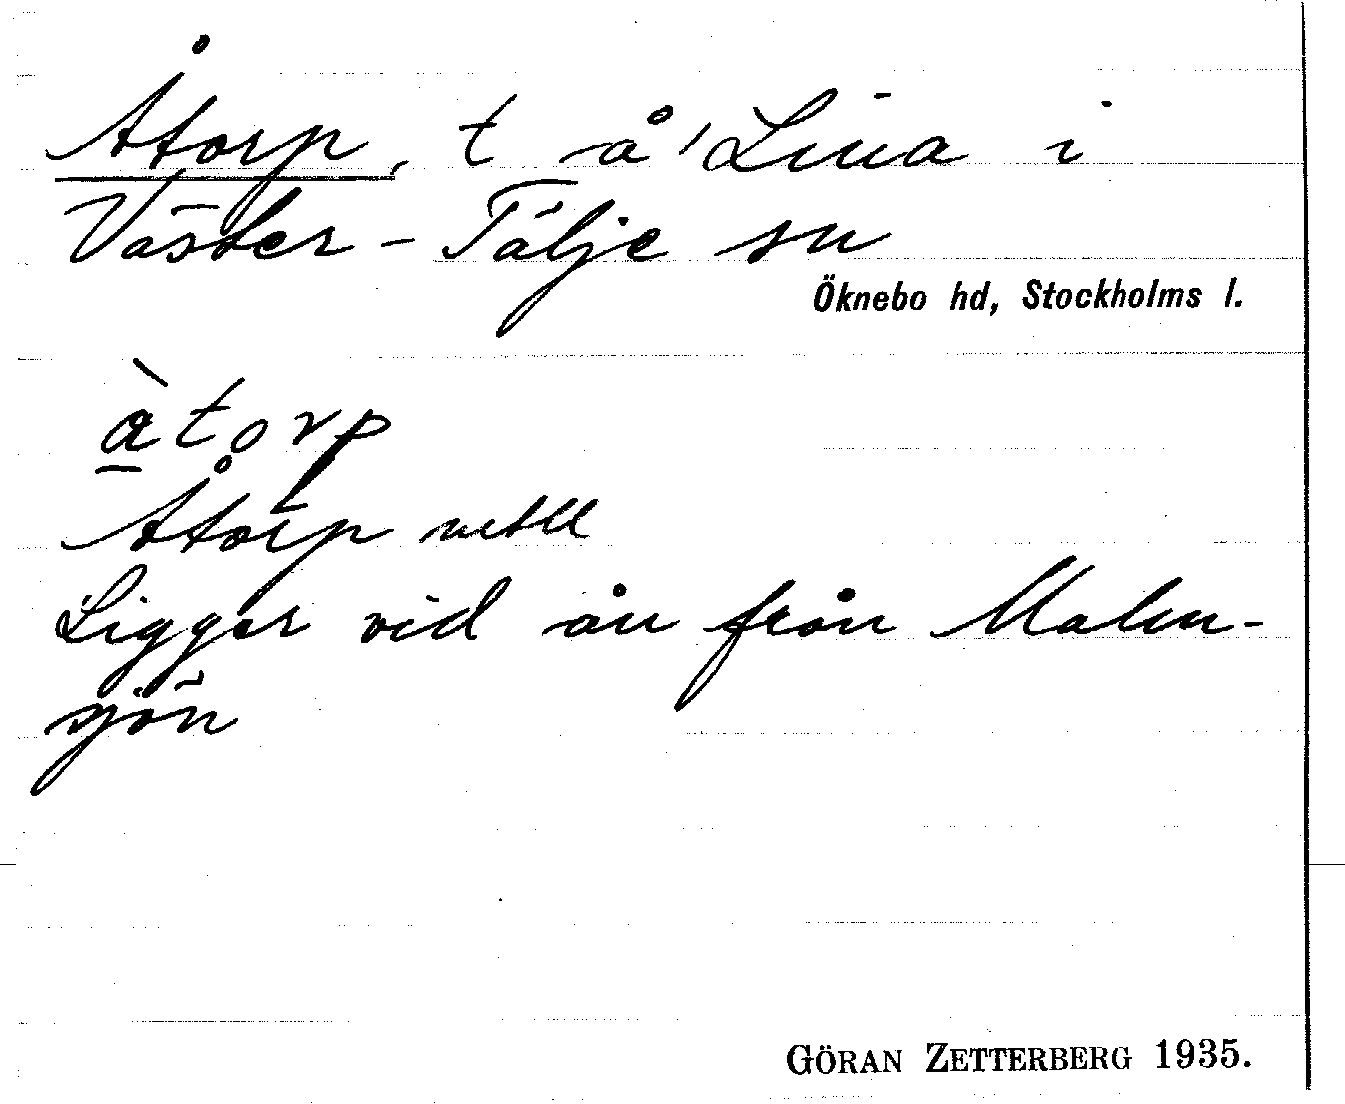 Åtorp, t å Lina i
Väster-Tälje sn
Öknebo hd, Stockholms l.
àtorp
Åtorp
Ligger vid ån från Malm-
sjön
GÖRAN ZETTERBERG 1935.